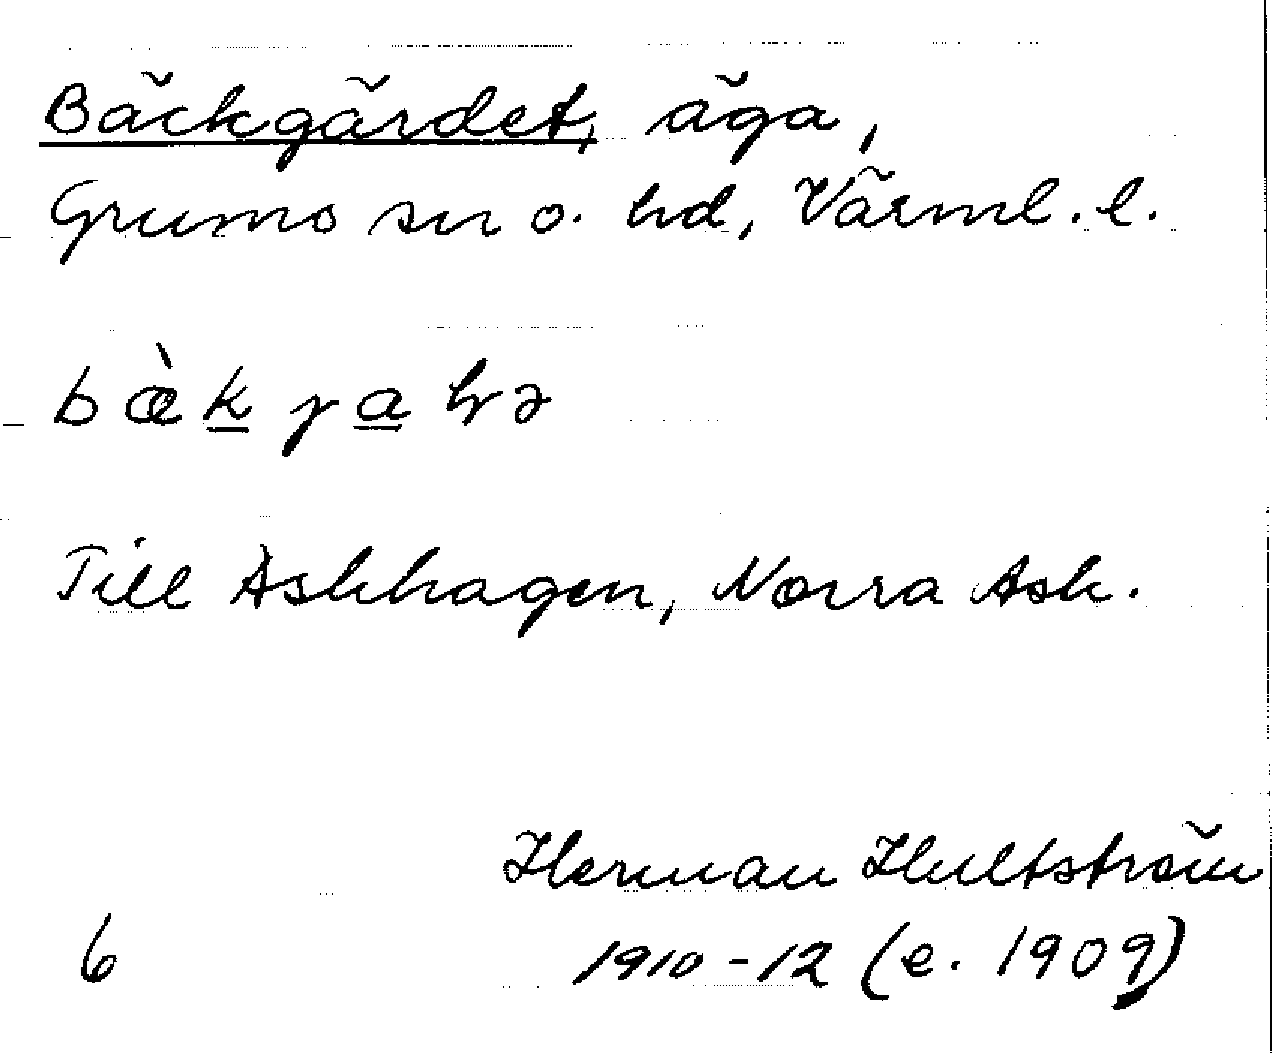 Bäckgärdet, äga,
Grums sn o. hd, Värml. l.
Till Askhagen, Norra Ask.
Herman Hultström
6 1910-12 (e. 1909)